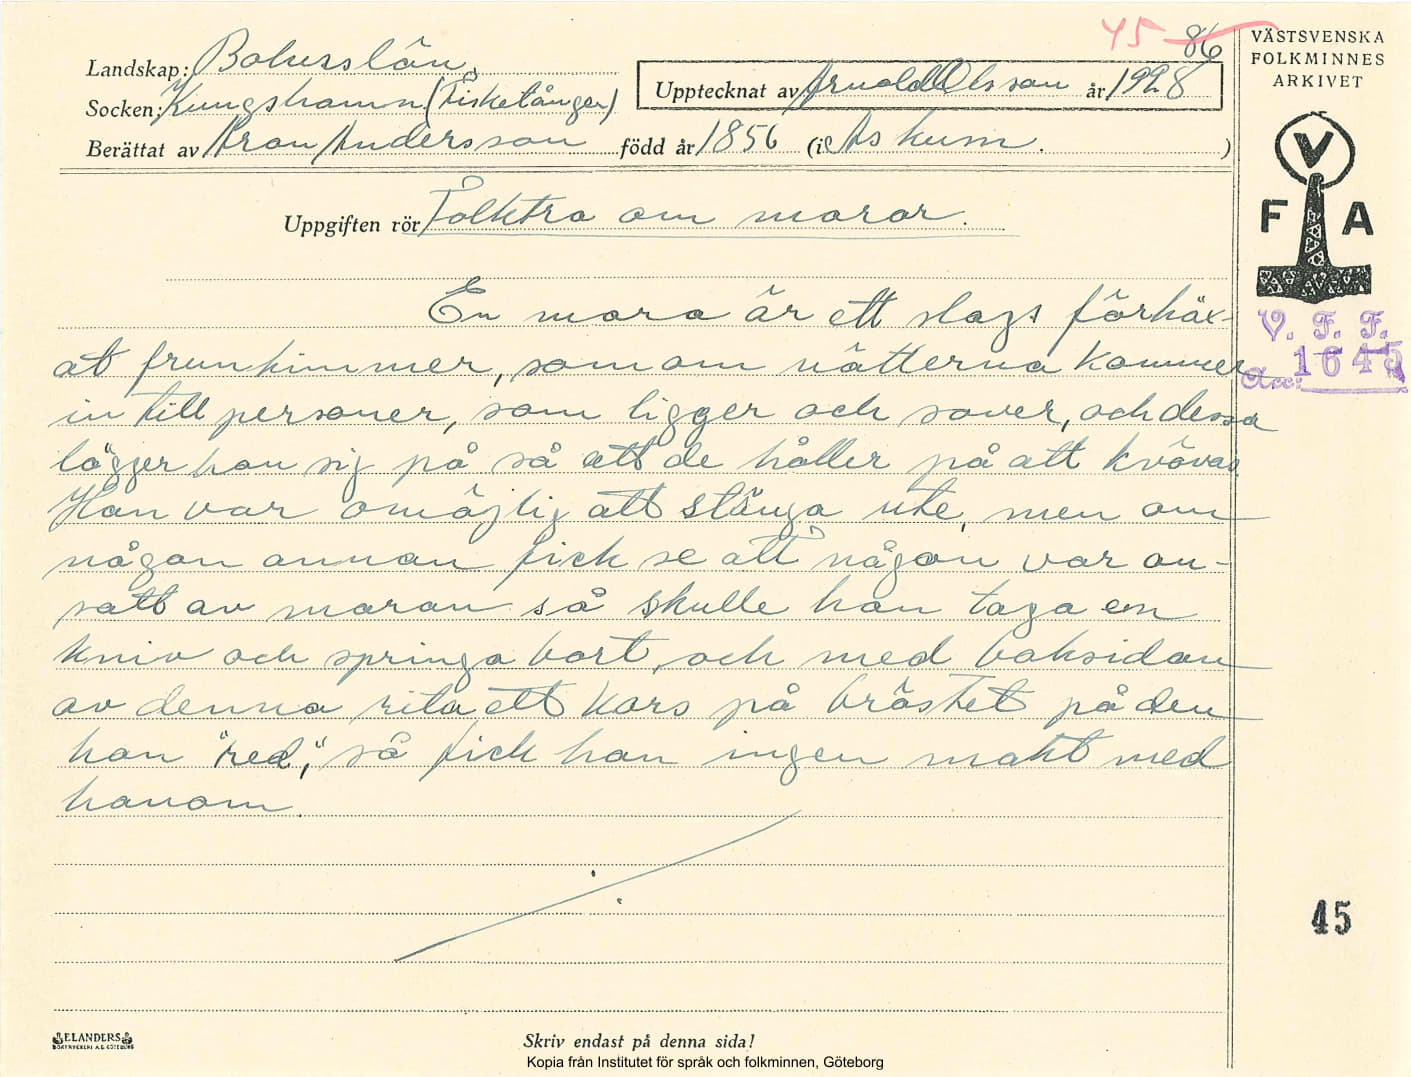 45 86
VÄSTSVENSKA
FOLKMINNES
ARKIVET
Landskap: Bohuslän
Socken: Kungshamn (Fisketången)
Upptecknat av Arnold Olsson år 1928
Berättat av Aron Andersson född år 1856 (i Askum. )
Uppgiften rör Folktro om maror.
V
F A
V. F. F.
Acc: 1645
En mara är ett slags förhäx-
at frunkimmer, som om nätterna kommer
in till personer, som ligger och sover, och dessa
lägger hon sig på så att de håller på att kvävas.
Hon var omöjlig att stänga ute, men om
någon annan fick se att någon var an-
satt av maran så skulle han taga en
kniv och springa bort, och med baksidan
av denna rita ett kors på bröstet på den
hon "red", så fick hon ingen makt med
honom.
45
ELANDERS
BOKTRYCKERI A.B. GÖTEBORG
Skriv endast på denna sida!
Kopia från Institutet för språk och folkminnen, Göteborg